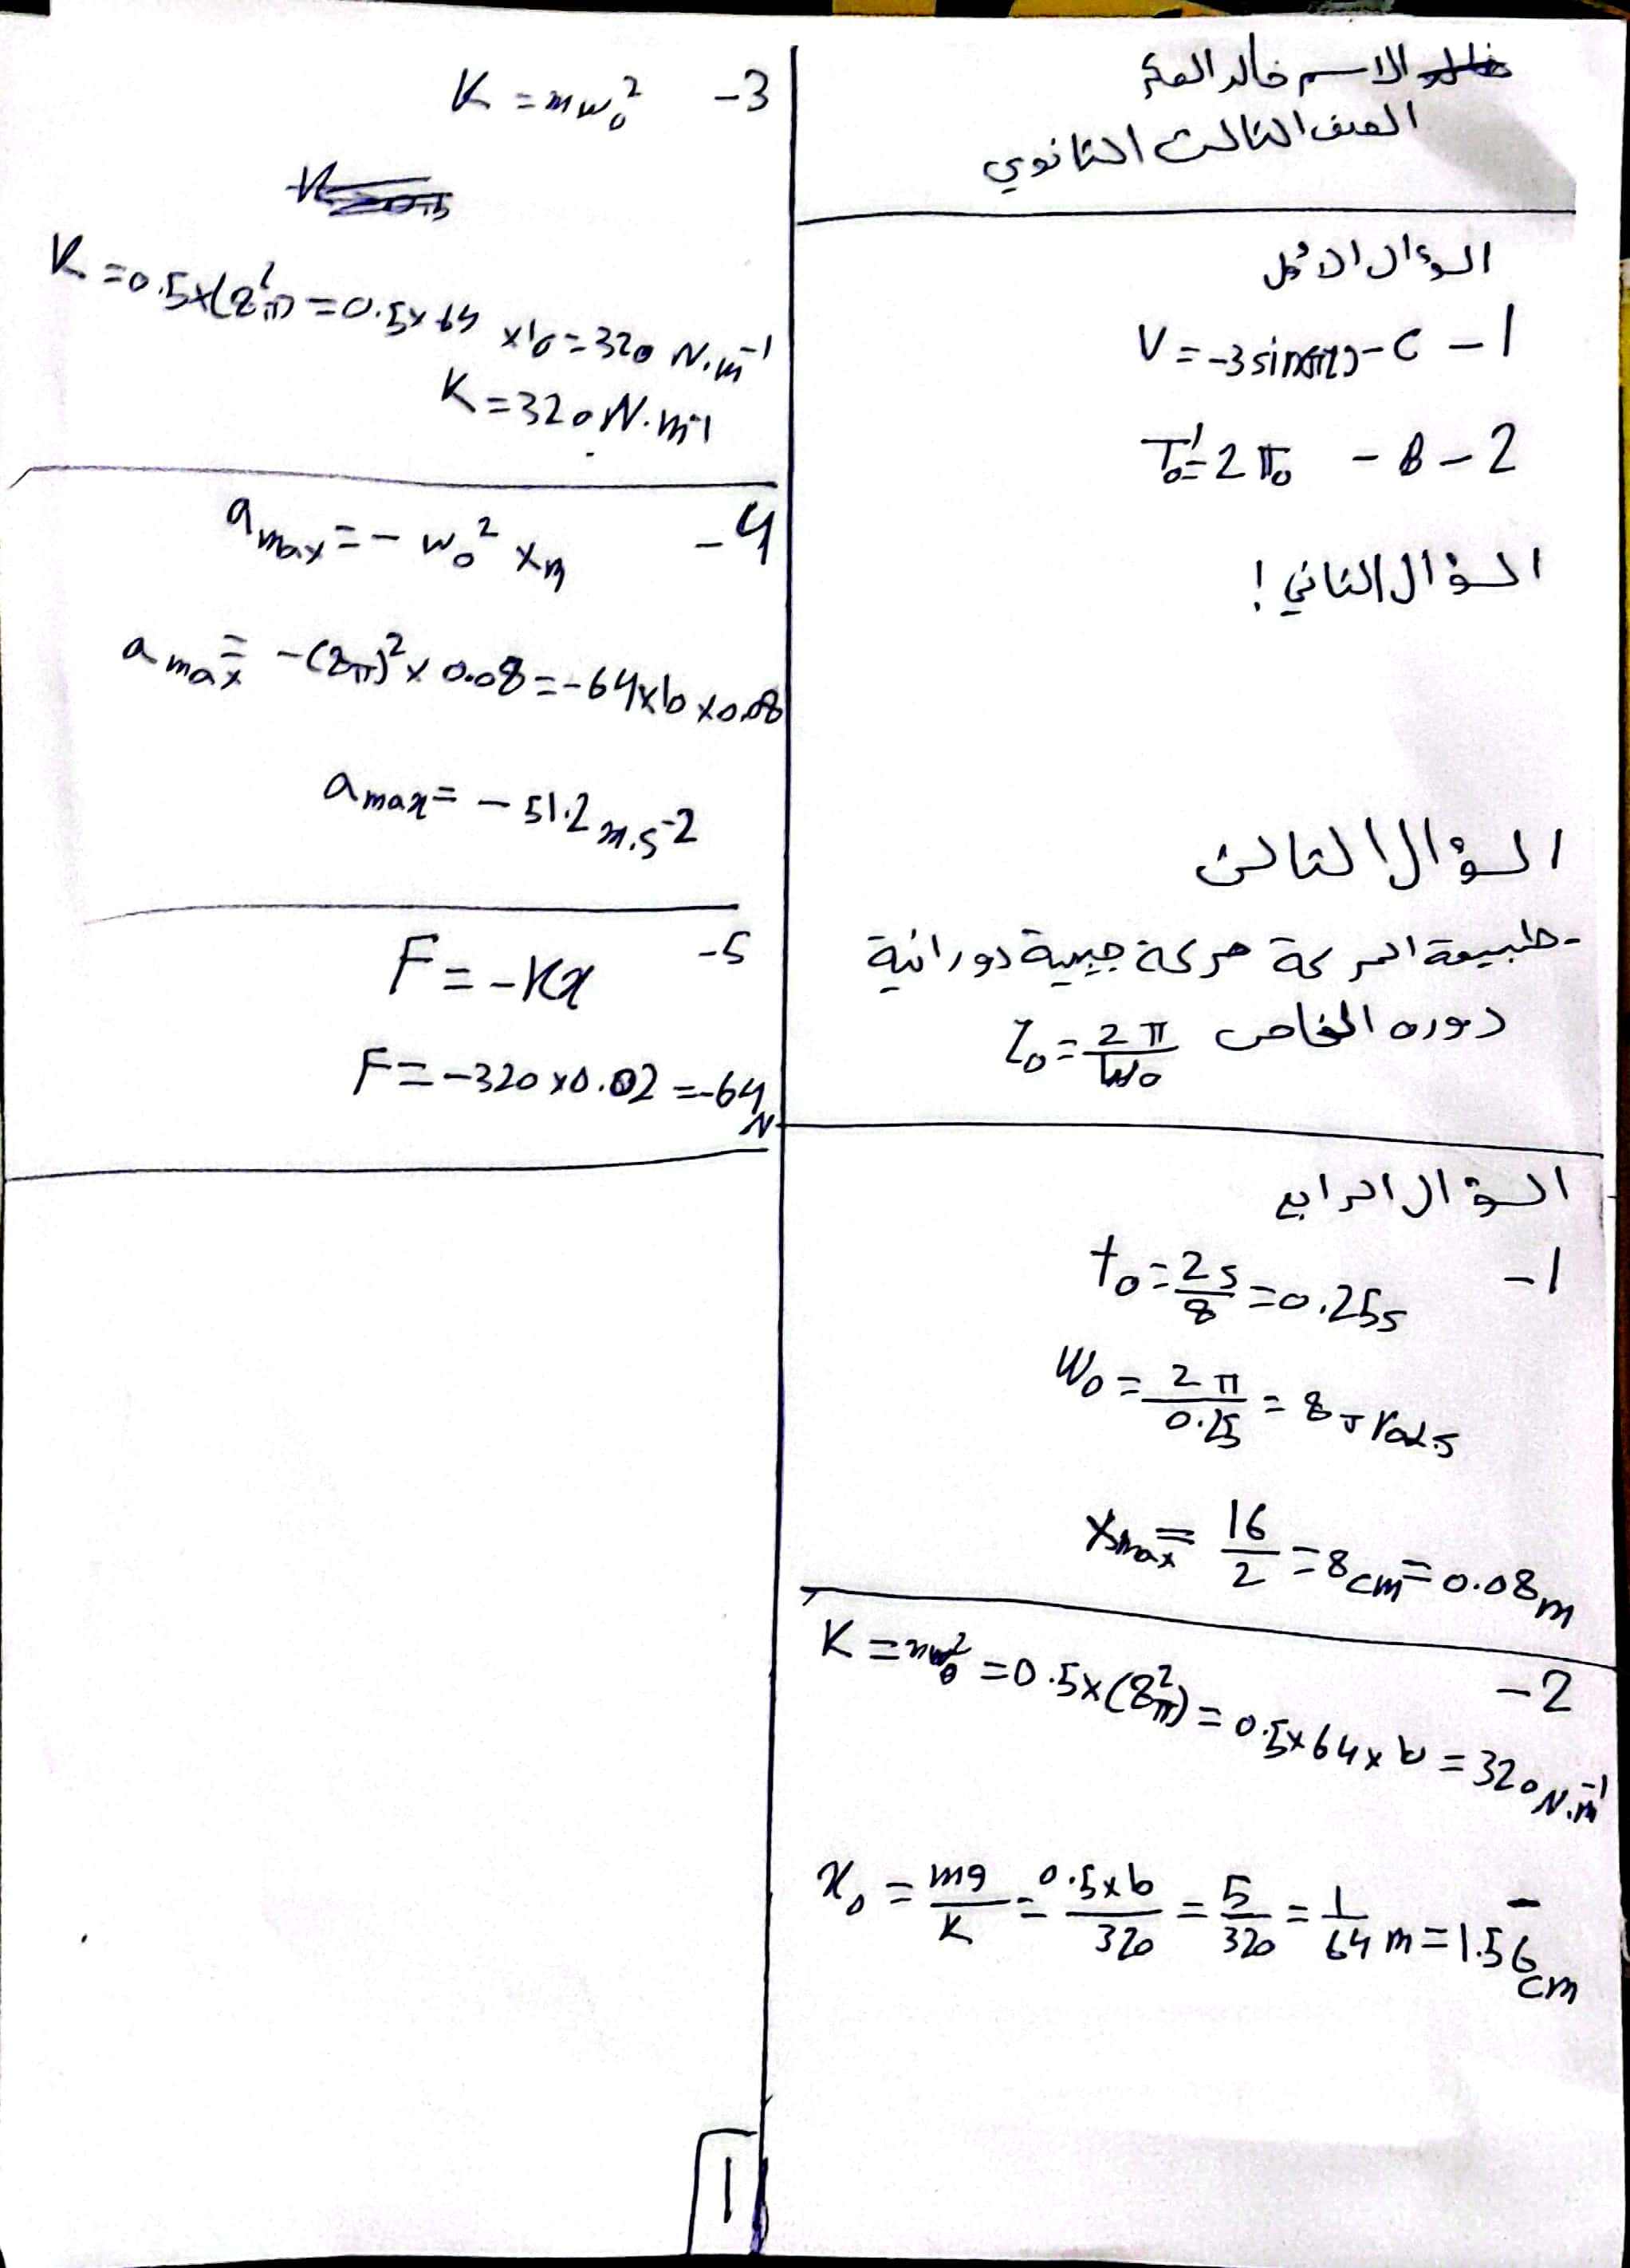 الاسم خالد
الصف الثالث الثانوي
السؤال الاول
1 - C - V = -3 sin(πt)
2 - B - T₀' = 2 T₀
السؤال الثاني !
السؤال الثالث
- طبيعة الحركة حركة جيبية دورانية
دوره الخاص T₀ = 2π/ω₀
السؤال الرابع
1-
t₀ = 2s/8 = 0.25s
W₀ = 2π/0.25 = 8π rad.s
Xmax = 16/2 = 8cm = 0.08m
2-
K = mw₀² = 0.5×(8π)² = 0.5×64×10 = 320 N.m⁻¹
x₀ = mg/K = 0.5×10/320 = 5/320 = 1/64 m = 1.56 cm
3- K = mw₀²
K = 0.5×(8π)² = 0.5×64×10 = 320 N.m⁻¹
K = 320 N.m⁻¹
4- amax = - w₀² xm
amax = -(8π)² × 0.08 = -64×10×0.08
amax = - 51.2 m.s⁻²
5- F = -Kx
F = -320×0.02 = -64 N
1